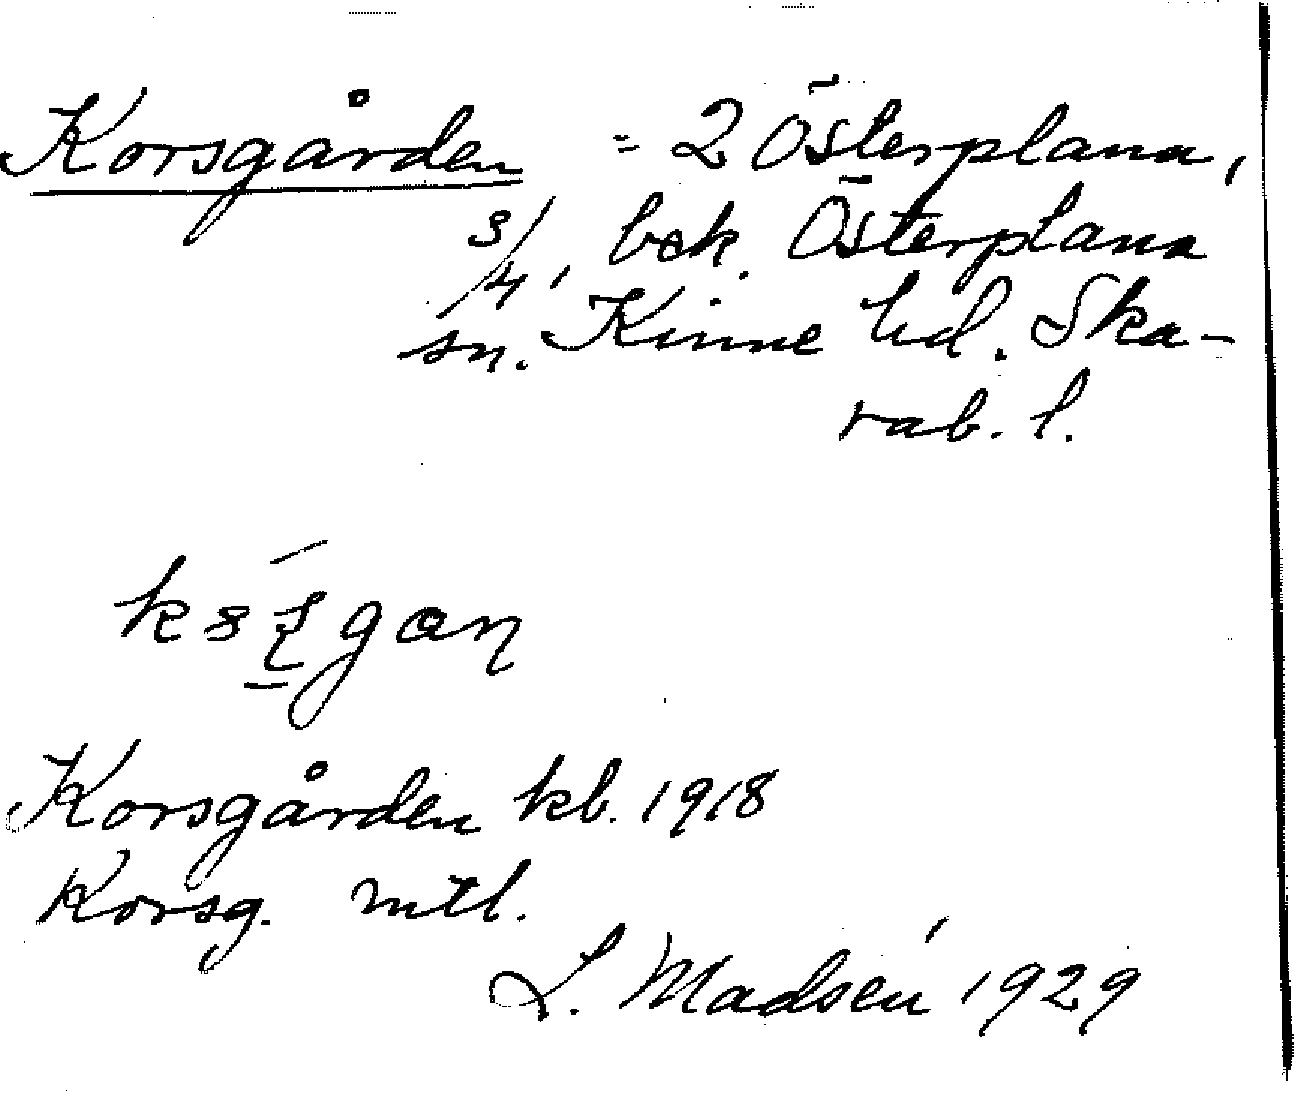 Korsgården = 2 Österplana,
3/4, bek. Österplana
sn. Kinne hd. Ska-
rab. l.
Korsgården kb. 1918
Korsg. mtl.
L. Madsén 1929